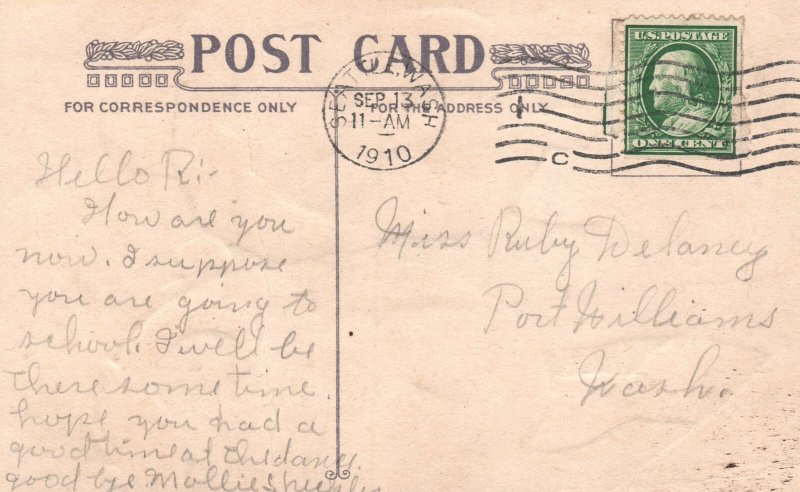 POST CARD
FOR CORRESPONDENCE ONLY
FOR THE ADDRESS ONLY
SEATTLE, WASH
SEP 13
11-AM
1910
C
U.S. POSTAGE
ONE CENT
Hello R:-
How are you
now. I suppose
you are going to
school. I will be
there some time.
hope you had a
good time at the dance.
good bye Mollie
Miss Ruby Delaney
Port Williams
Wash.